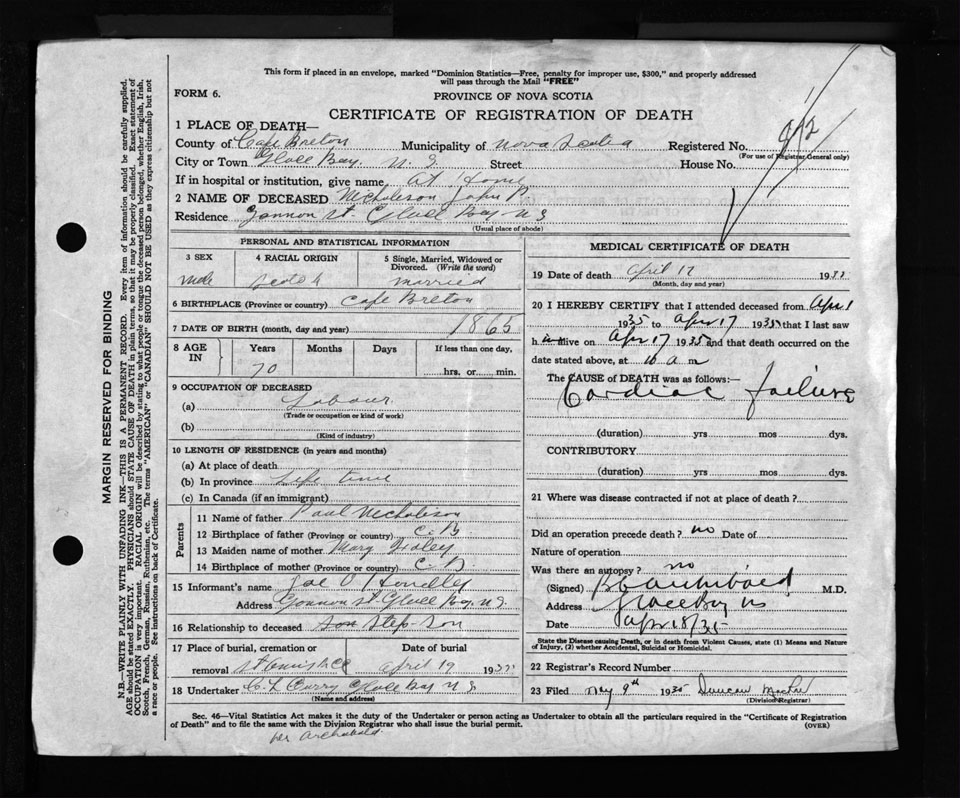 This form if placed in an envelope, marked "Dominion Statistics—Free, penalty for improper use, $300," and properly addressed
will pass through the Mail "FREE"
FORM 6.
PROVINCE OF NOVA SCOTIA
CERTIFICATE OF REGISTRATION OF DEATH
1 PLACE OF DEATH—
County of Cape Breton Municipality of Nova Scotia Registered No.
(For use of Registrar General only)
City or Town Glace Bay. N. S. Street House No.
If in hospital or institution, give name At Home
2 NAME OF DECEASED Nicholson John P.
Residence Gannon St. Glace Bay N S
(Usual place of abode)
PERSONAL AND STATISTICAL INFORMATION
3 SEX 4 RACIAL ORIGIN 5 Single, Married, Widowed or Divorced. (Write the word)
Male Scotch married
6 BIRTHPLACE (Province or country) Cape Breton
7 DATE OF BIRTH (month, day and year) 1865
8 AGE IN Years Months Days If less than one day,
70 hrs. or min.
9 OCCUPATION OF DECEASED
(a) Labour
(Trade or occupation or kind of work)
(b)
(Kind of industry)
10 LENGTH OF RESIDENCE (in years and months)
(a) At place of death
(b) In province Life time
(c) In Canada (if an immigrant)
Parents
11 Name of father Paul Nicholson
12 Birthplace of father (Province or country) C. B
13 Maiden name of mother Mary
14 Birthplace of mother (Province or country) C. B.
15 Informant's name Joe O'Handley
Address Gannon St Glace Bay, N. S.
16 Relationship to deceased son Step-Son
17 Place of burial, cremation or Date of burial
removal April 19 1935
18 Undertaker Curry Glace Bay N S
(Name and address)
MEDICAL CERTIFICATE OF DEATH
19 Date of death April 17 1935
(Month, day and year)
20 I HEREBY CERTIFY that I attended deceased from Apr 1
1935 to Apr 17 1935 that I last saw
h im alive on Apr 17 1935 and that death occurred on the
date stated above, at 10 a m
The CAUSE of DEATH was as follows:—
Cardiac failure
(duration) yrs mos dys.
CONTRIBUTORY
(duration) yrs mos dys.
21 Where was disease contracted if not at place of death?
Did an operation precede death? no Date of
Nature of operation
Was there an autopsy? no
(Signed) Archibald M.D.
Address Glace Bay NS
Date Apr 18/35
State the Disease causing Death, or in death from Violent Causes, state (1) Means and Nature
of Injury, (2) whether Accidental, Suicidal or Homicidal.
22 Registrar's Record Number
23 Filed May 9th 1935 Duncan
(Division Registrar)
Sec. 46—Vital Statistics Act makes it the duty of the Undertaker or person acting as Undertaker to obtain all the particulars required in the "Certificate of Registration
of Death" and to file the same with the Division Registrar who shall issue the burial permit. (OVER)
per Archibald
MARGIN RESERVED FOR BINDING
N.B.—WRITE PLAINLY WITH UNFADING INK—THIS IS A PERMANENT RECORD. Every item of information should be carefully supplied.
AGE should be stated EXACTLY. PHYSICIANS should STATE CAUSE OF DEATH in plain terms, so that it may be properly classified. Exact statement of
OCCUPATION is very important. RACIAL ORIGIN will be described by stating to what people or tongue the deceased person belonged, whether English, Irish,
Scotch, French, German, Russian, Ruthenian, etc. The terms "AMERICAN" or "CANADIAN" SHOULD NOT BE USED as they express citizenship but not
a race or people. See instructions on back of Certificate.